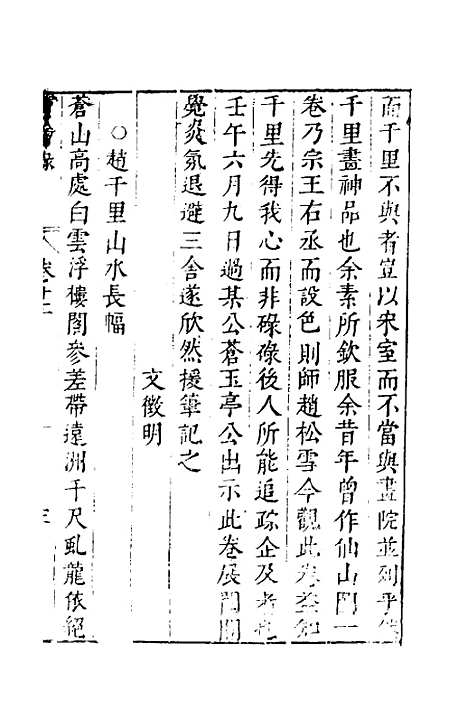 而千里不與者豈以宋室而不當與畫院並列乎
千里畫神品也余素所欽服余昔年曾作仙山圖一
卷乃宗王右丞而設色則師趙松雪今觀此卷益知
千里先得我心而非碌碌後人所能追踪企及者也
壬午六月九日過某公蒼玉亭公出示此卷展閱間
覺炎氛退避三舍遂欣然援筆記之
文徵明
○趙千里山水長幅
蒼山高處白雲浮樓閣參差帶遠洲千尺虬龍依絕
卷十二
三